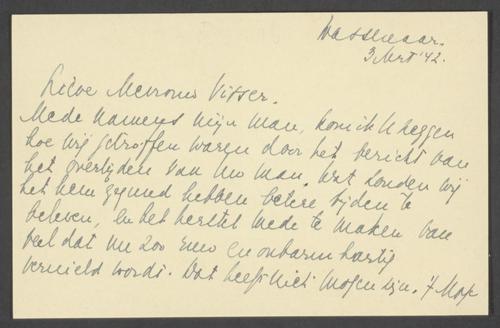 Wassenaar.
3 Mrt '42.
Lieve Mevrouw Visser.
Mede namens mijn man, kom ik U zeggen
hoe wij getroffen waren door het bericht van
het overlijden van Uw man. Wat zouden wij
het hem gegund hebben betere tijden te
beleven, en het herstel mede te maken van
veel dat nu zoo ruw en onbarmhartig
vernield wordt. Dat heeft niet mogen zijn.